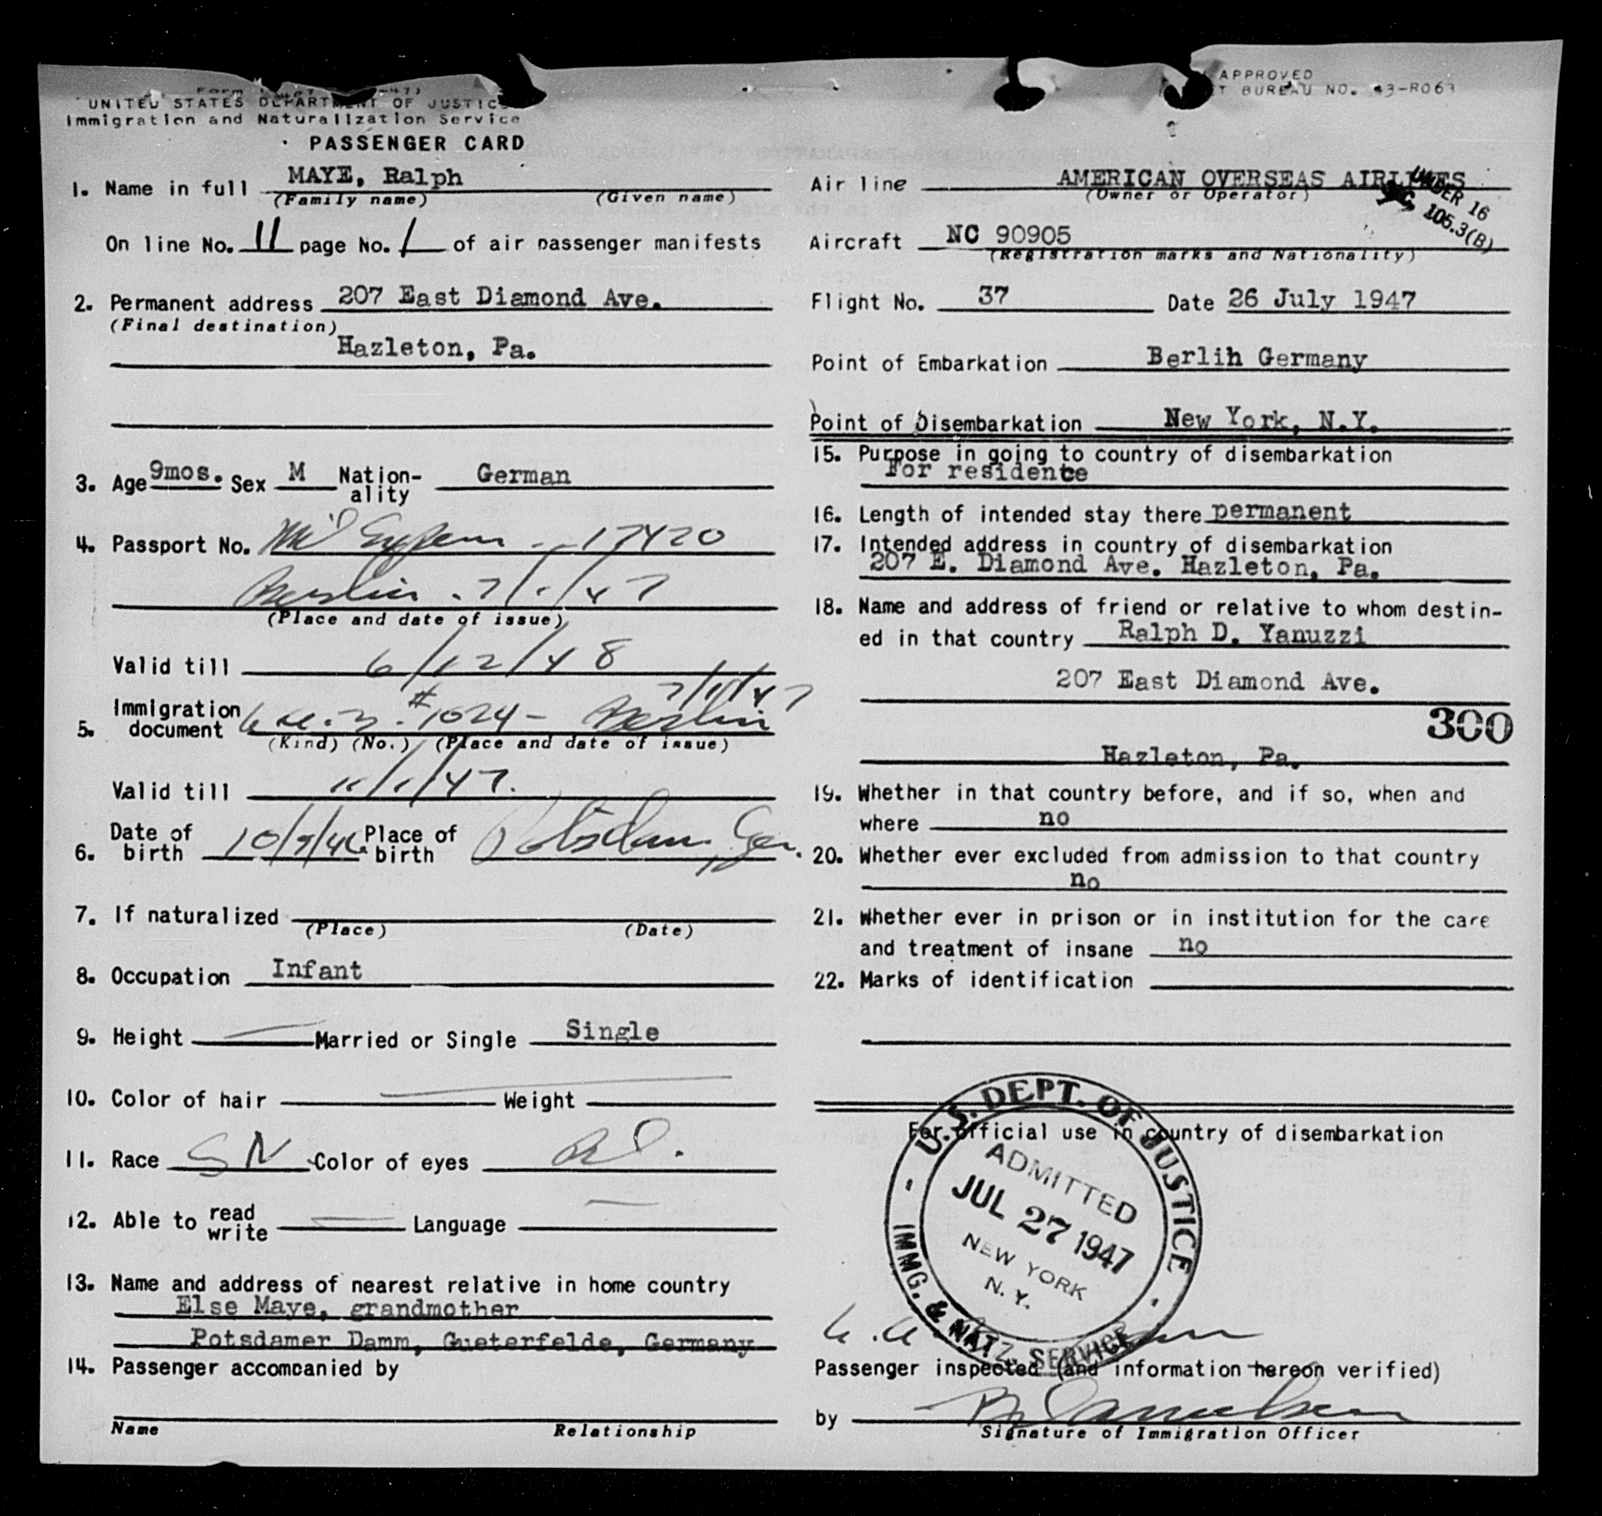 UNITED STATES DEPARTMENT OF JUSTICE
Immigration and Naturalization Service
PASSENGER CARD
1. Name in full MAYE, Ralph
(Family name) (Given name)
On line No. 11 page No. 1 of air passenger manifests
2. Permanent address 207 East Diamond Ave.
(Final destination)
Hazleton, Pa.
3. Age 9mos. Sex M Nation-ality German
4. Passport No. 17420
Berlin - 7/1/47
(Place and date of issue)
Valid till 6/12/48
7/1/47
5. Immigration document #1024 - Berlin
(Kind) (No.) (Place and date of issue)
Valid till 11/1/47.
6. Date of birth 10/9/46 Place of birth Potsdam, Ger.
7. If naturalized
(Place) (Date)
8. Occupation Infant
9. Height Married or Single Single
10. Color of hair Weight
11. Race Color of eyes
12. Able to read write Language
13. Name and address of nearest relative in home country
Else Maye, grandmother
Potsdamer Damm, Gueterfelde, Germany
14. Passenger accompanied by
Name Relationship
APPROVED
BUREAU NO. 43-R063
Air line AMERICAN OVERSEAS AIRLINES
(Owner or Operator)
UNDER 16
105.3(B)
Aircraft NC 90905
(Registration marks and Nationality)
Flight No. 37 Date 26 July 1947
Point of Embarkation Berlin Germany
Point of Disembarkation New York, N.Y.
15. Purpose in going to country of disembarkation
For residence
16. Length of intended stay there permanent
17. Intended address in country of disembarkation
207 E. Diamond Ave. Hazleton, Pa.
18. Name and address of friend or relative to whom destin-
ed in that country Ralph D. Yanuzzi
207 East Diamond Ave.
300
Hazleton, Pa.
19. Whether in that country before, and if so, when and
where no
20. Whether ever excluded from admission to that country
no
21. Whether ever in prison or in institution for the care
and treatment of insane no
22. Marks of identification
For official use in country of disembarkation
U.S. DEPT. OF JUSTICE
ADMITTED
JUL 27 1947
NEW YORK
N. Y.
IMMG. & NATZ. SERVICE
Passenger inspected (and information hereon verified)
by
Signature of Immigration Officer